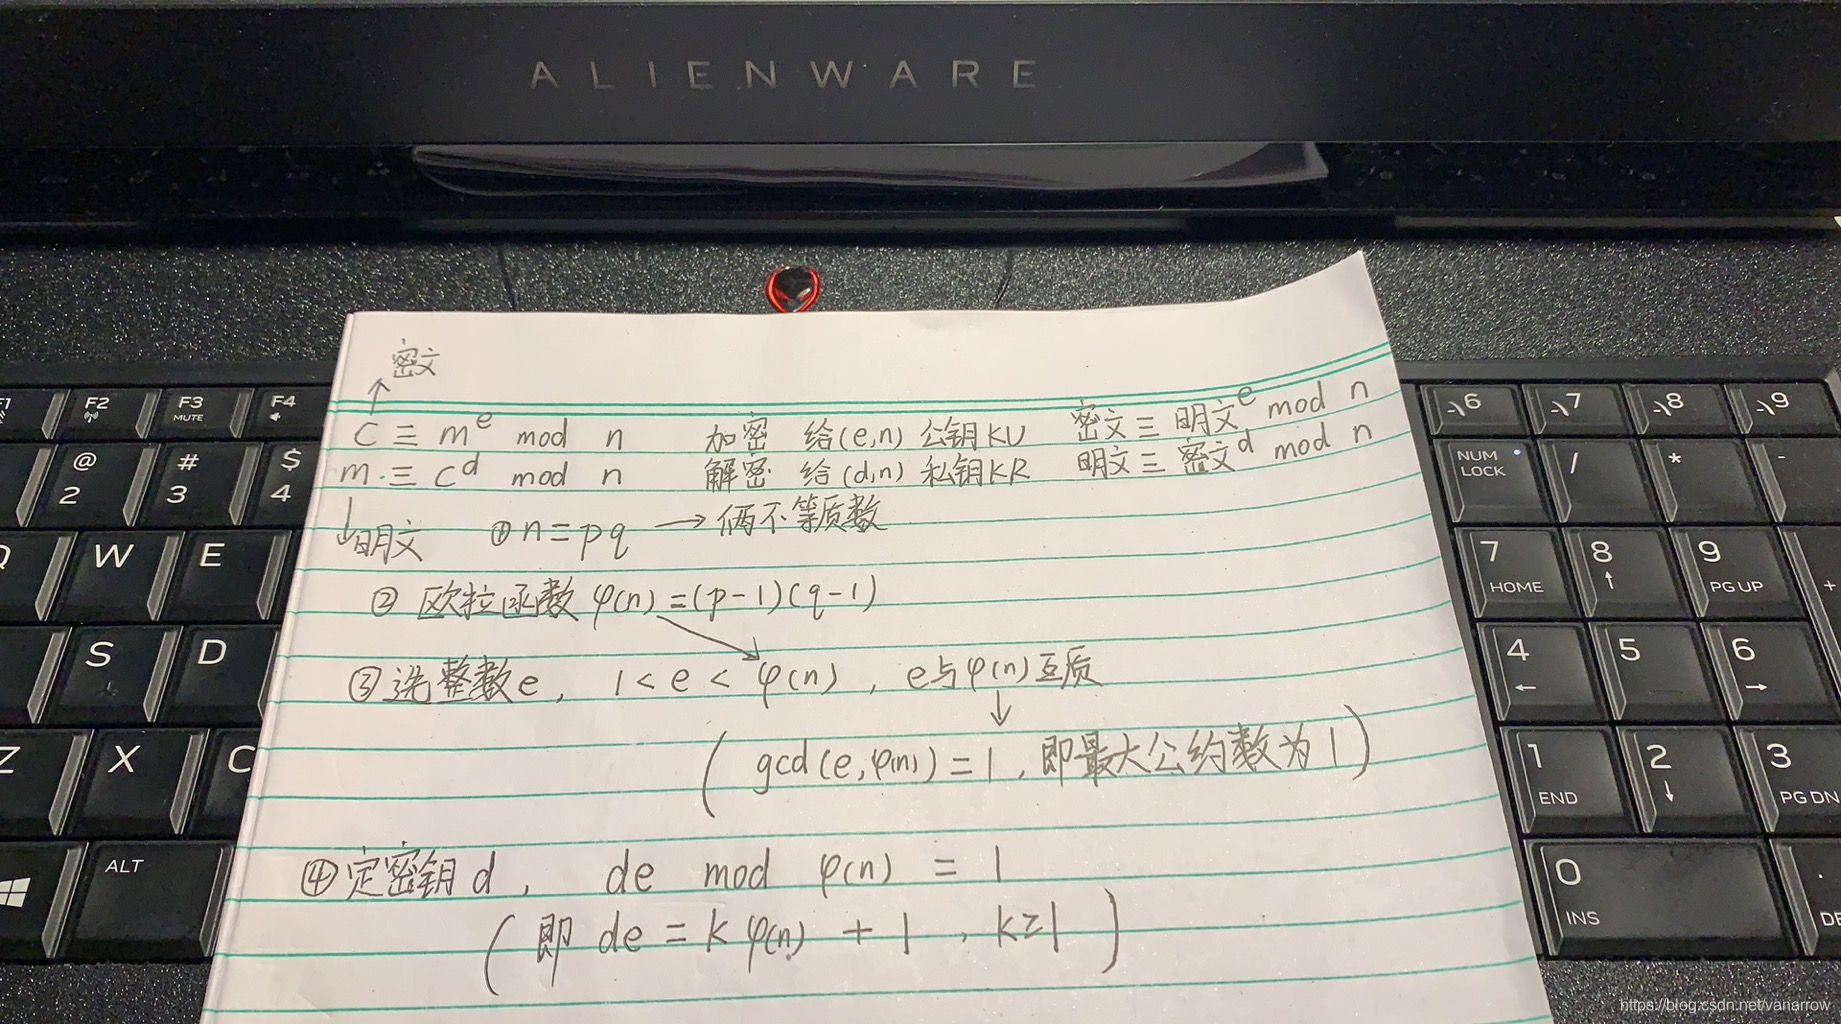 ALIENWARE
密文
↑
C ≡ m^e mod n 加密 给(e,n) 公钥KU 密文≡明文^e mod n
m ≡ c^d mod n 解密 给(d,n) 私钥KR 明文≡密文^d mod n
↓明文 ① n=pq → 俩不等质数
② 欧拉函数 φ(n)=(p-1)(q-1)
③ 选整数e, 1<e<φ(n), e与φ(n)互质
(gcd(e,φ(n))=1, 即最大公约数为1)
④ 定密钥d, de mod φ(n) = 1
(即 de = kφ(n) + 1, k≥1)
F1
F2
F3
MUTE
F4
@
2
#
3
$
4
Q
W
E
S
D
Z
X
C
ALT
6
7
8
9
NUM
LOCK
/
*
-
7
HOME
8
↑
9
PG UP
+
4
←
5
6
→
1
END
2
↓
3
PG DN
0
INS
.
DE
https://blog.csdn.net/vanarrow